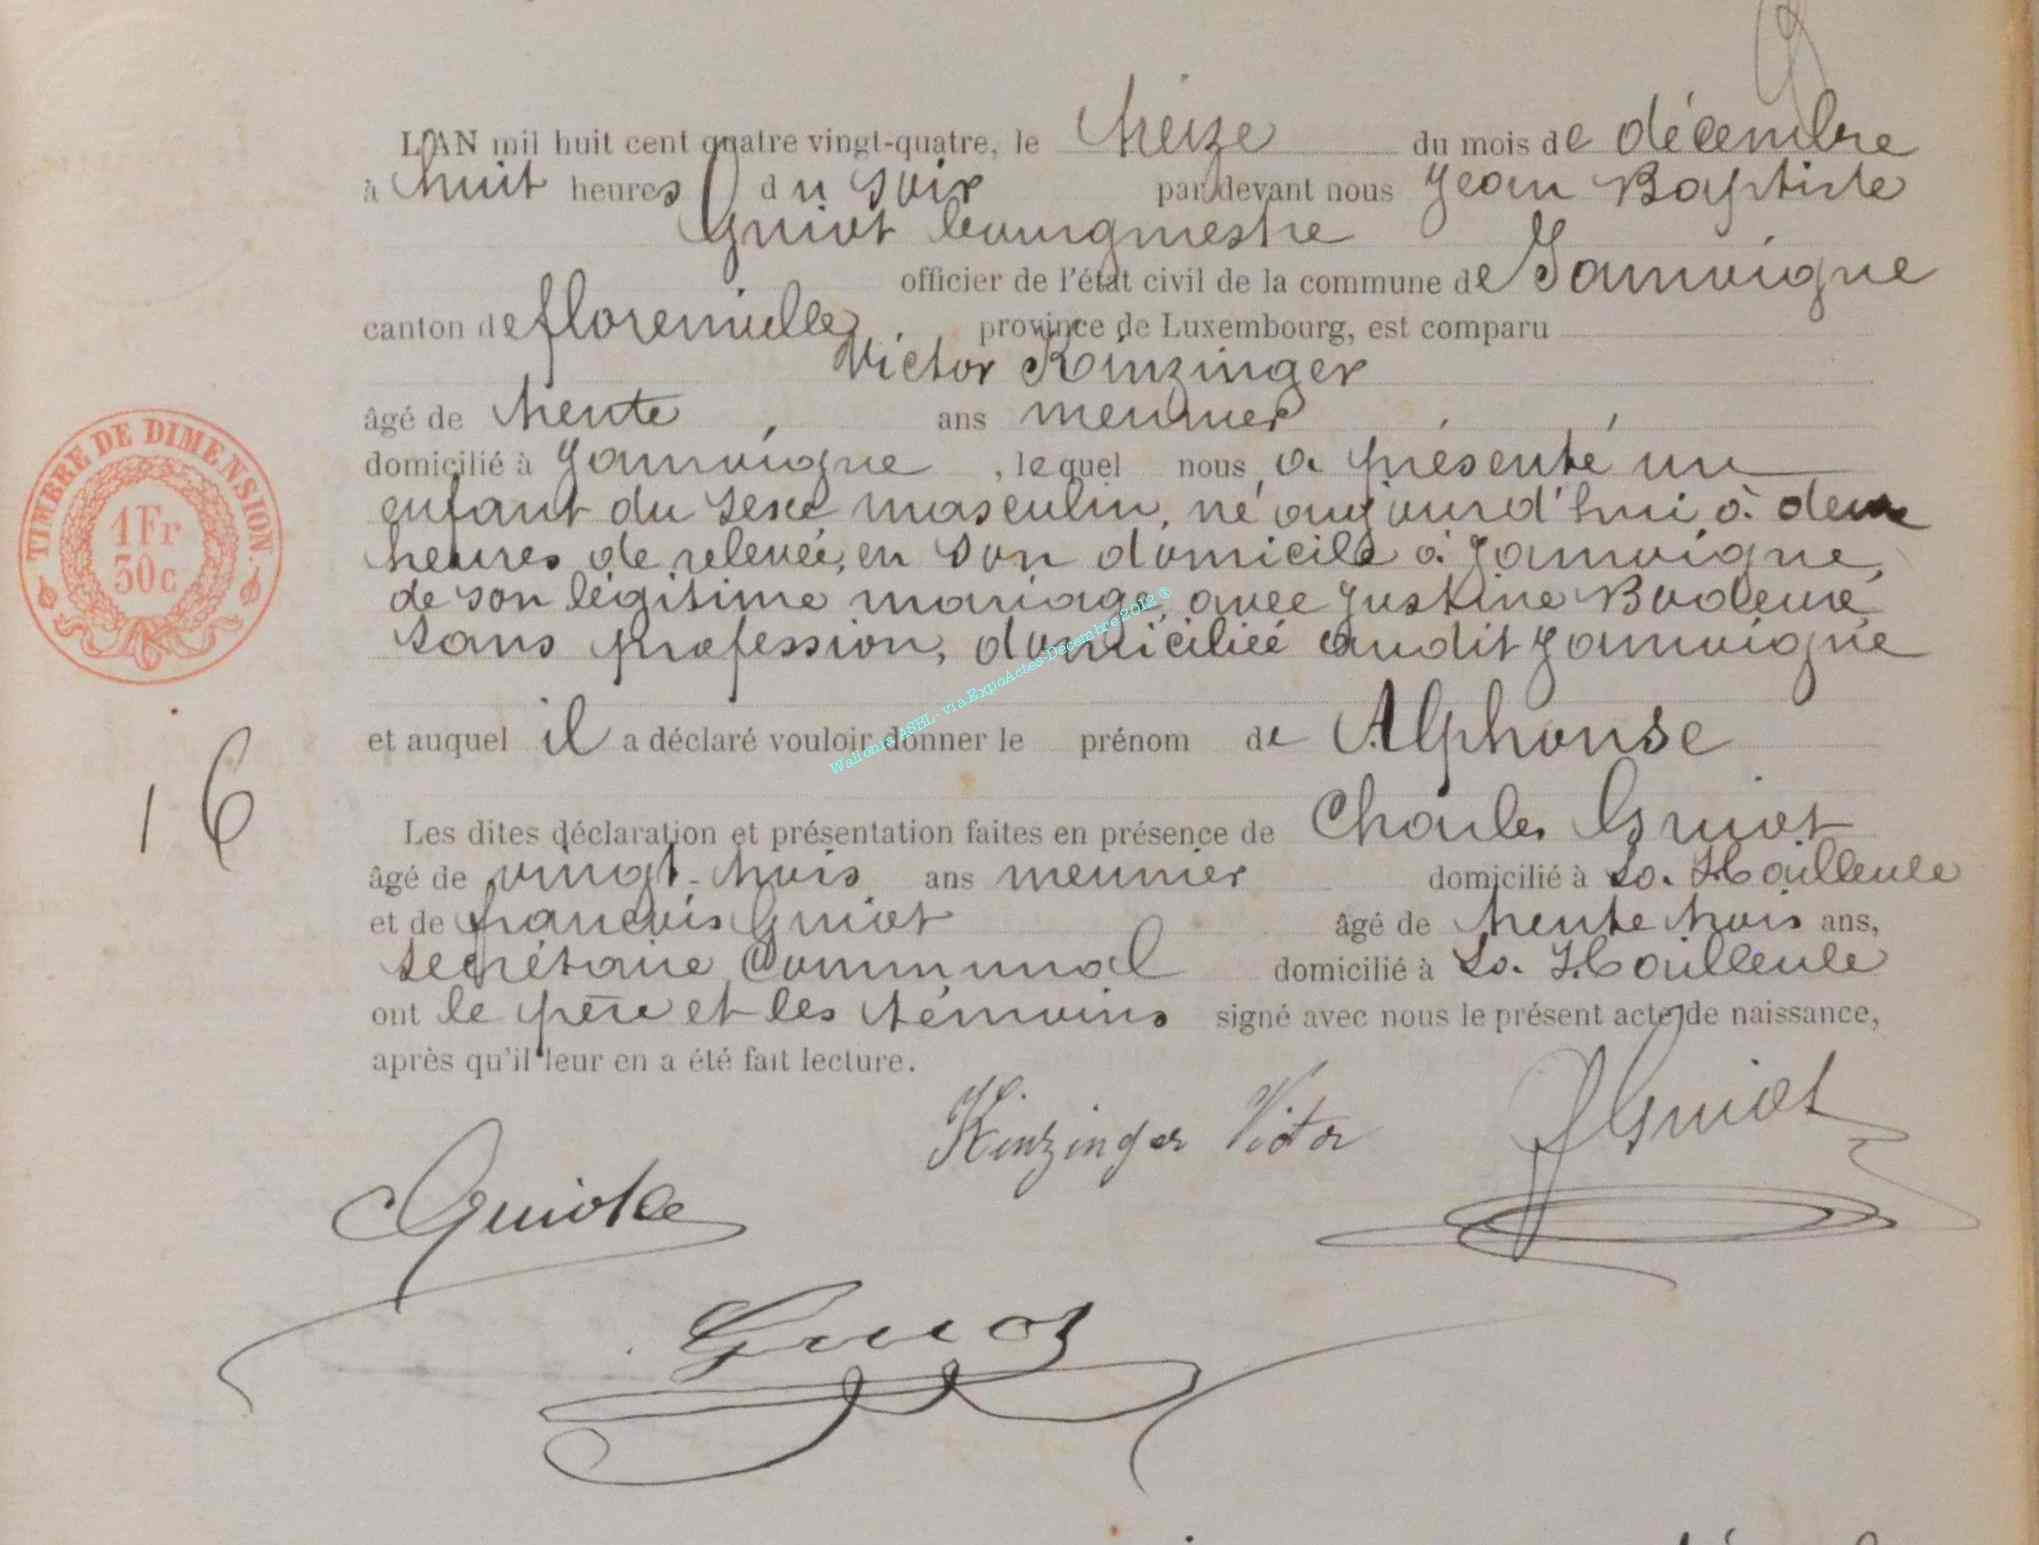 L'AN mil huit cent quatre vingt-quatre, le treize du mois de décembre
à huit heures du soir par devant nous Jean Baptiste
Guiot bourgmestre
officier de l'état civil de la commune de Jamoigne
canton de florenville, province de Luxembourg, est comparu
Victor Kinzinger
âgé de trente ans meunier
domicilié à Jamoigne, lequel nous a présenté un
enfant du sexe masculin, né aujourd'hui à deux
heures de relevée, en son domicile à Jamoigne,
de son légitime mariage avec Justine
sans profession, domiciliée audit Jamoigne
et auquel il a déclaré vouloir donner le prénom de Alphonse
Les dites déclaration et présentation faites en présence de Charles Guiot
âgé de vingt-trois ans meunier domicilié à La Hailleule
et de françois Guiot âgé de trente trois ans,
secrétaire Communal domicilié à La Hailleule
ont le père et les témoins signé avec nous le présent acte de naissance,
après qu'il leur en a été fait lecture.
Kinzinger Victor
Guiot
Guiot
TIMBRE DE DIMENSION.
1Fr
50c
16
Wallonie ASBL - via ExpoActes-Decembre 2012 ©